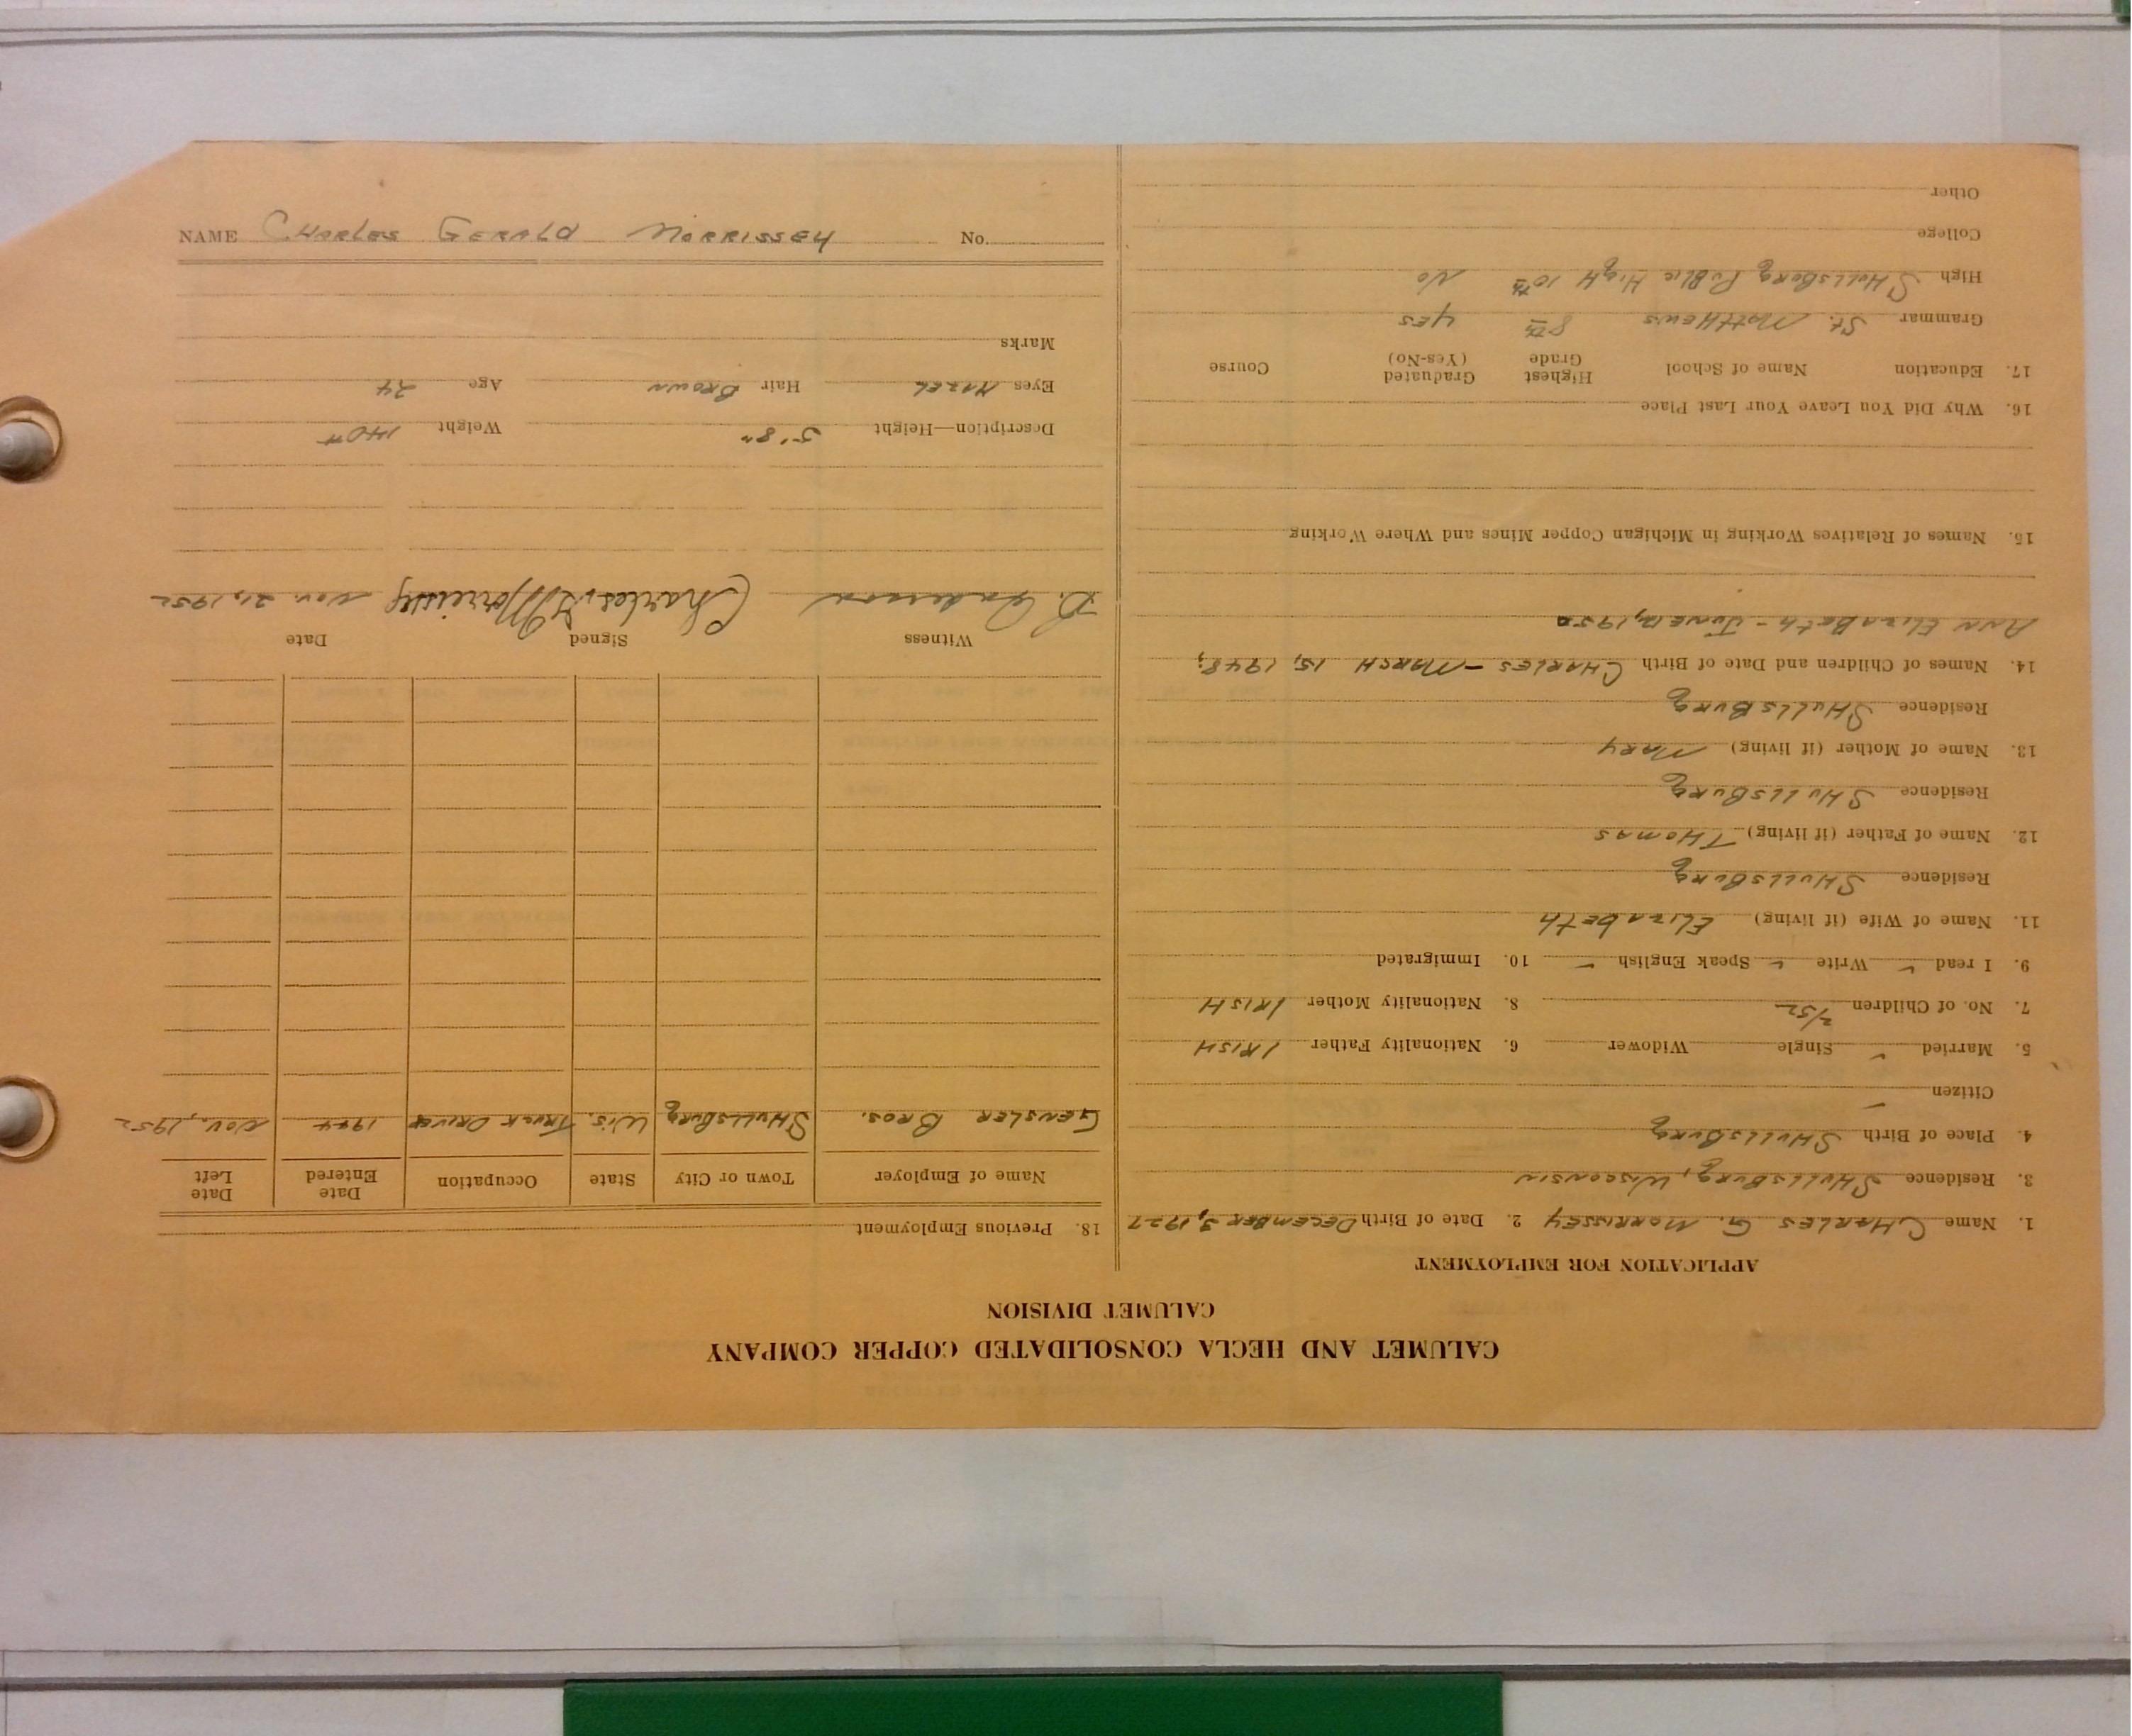 CALUMET AND HECLA CONSOLIDATED COPPER COMPANY
CALUMET DIVISION
APPLICATION FOR EMPLOYMENT
1. Name CHARLES G. MORRISSEY 2. Date of Birth DECEMBER 3, 1927
3. Residence SHULLSBURG, WISCONSIN
4. Place of Birth SHULLSBURG
Citizen ✓
5. Married ✓ Single Widower 6. Nationality Father IRISH
7. No. of Children 2/52 8. Nationality Mother IRISH
9. I read ✓ Write ✓ Speak English ✓ 10. Immigrated
11. Name of Wife (if living) ELIZABETH
Residence SHULLSBURG
12. Name of Father (if living) THOMAS
Residence SHULLSBURG
13. Name of Mother (if living) MARY
Residence SHULLSBURG
14. Names of Children and Date of Birth CHARLES - MARCH 15, 1948;
ANN ELIZABETH - JUNE 12, 1950
15. Names of Relatives Working in Michigan Copper Mines and Where Working
16. Why Did You Leave Your Last Place
17. Education Name of School Highest Grade Graduated (Yes-No) Course
Grammar St. MATTHEWS 8th YES
High SHULLSBURG PUBLIC HIGH 10th NO
College
Other
18. Previous Employment
Name of Employer Town or City State Occupation Date Entered Date Left
GENSLER BROS. SHULLSBURG WIS. TRUCK DRIVER 1944 NOV., 1952
Witness Signed Date
D. Anderson Charles G Morrissey Nov. 21, 1952
Description—Height 5'8" Weight 140#
Eyes HAZEL Hair BROWN Age 24
Marks
NAME CHARLES GERALD MORRISSEY No.